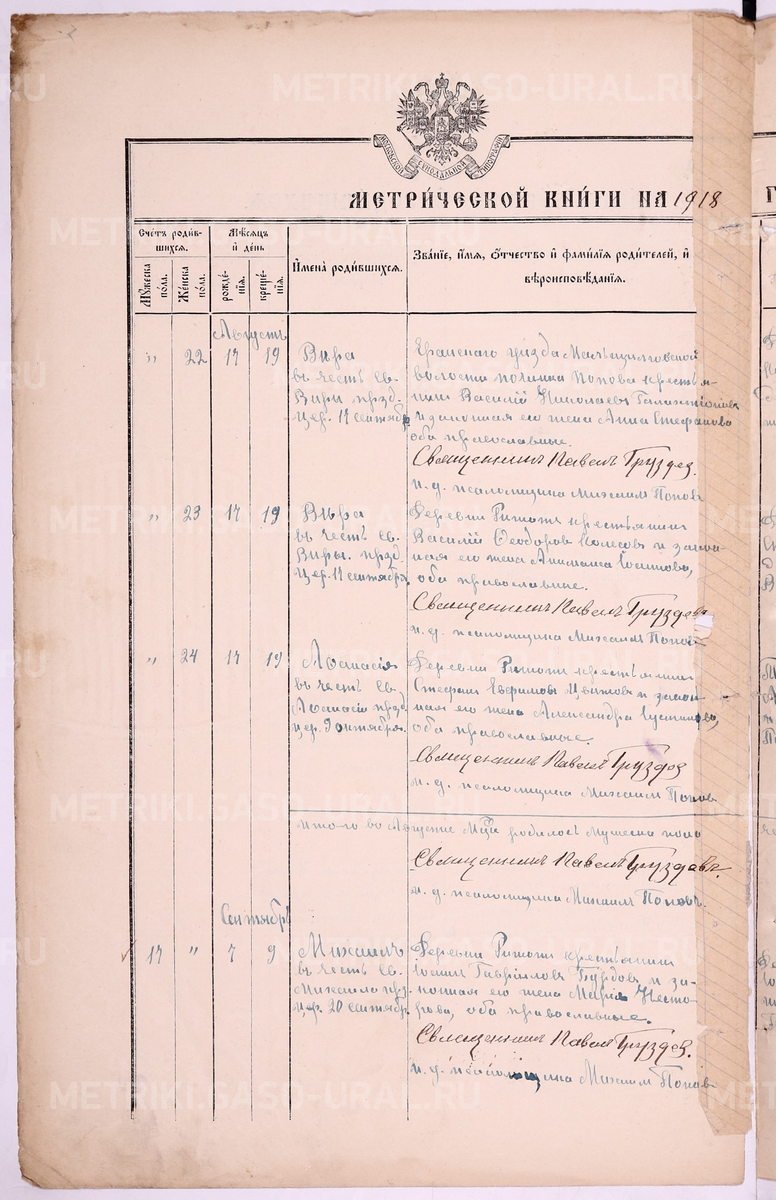 METRIKI.GASO-URAL.RU
МОСКОВСКОЙ СѴНОДАЛЬНОЙ ТИПОГРАФІИ
МЕТРИЧЕСКОЙ КНИГИ НА 1918
Счетъ родив-
шихся.
Мужеска
пола.
Женска
пола.
Мѣсяцъ
и день
рожде-
нія.
креще-
нія.
Имена родившихся.
Званіе, имя, отчество и фамилія родителей, и
вѣроисповѣданія.
Августъ
" 22 17 19
Вѣра
въ честь св.
Вѣры празд.
цер. 17 сентября
уѣзда
волости починка Попова крестья-
нинъ Василій Николаевъ
и законная его жена Анна Стефанова
оба православные.
Священникъ Павелъ Груздев
и. д. псаломщика Михаилъ Поповъ
" 23 17 19
Вѣра
въ честь св.
Вѣры. празд.
цер. 17 сентября.
Деревни крестьянинъ
Василій Ѳеодоровъ Колесовъ и закон-
ная его жена
оба православные.
Священникъ Павелъ Груздевъ
и. д. псаломщика Михаилъ Попов
" 24 17 19
Аѳанасія
въ честь св.
Аѳанасіи празд
цер. 9 сентября.
Деревни крестьянинъ
Стефанъ Евфимовъ и закон-
ная его жена Александра Іустинова,
оба православные.
Священникъ Павелъ Груздев
и. д. псаломщика Михаилъ Поповъ
Итого во Августѣ родилось мужеска пола
Священникъ Павелъ Груздевъ.
и. д. псаломщика Михаилъ Поповъ.
Сентябрь
17 " 7 9
Михаилъ
въ честь св.
Михаила празд.
цер. 20 сентября.
Деревни крестьянинъ
Гаврііловъ Бурдовъ и за-
конная его жена Марія Несто-
рова, оба православные.
Священникъ Павелъ Груздев.
и. д. псаломщика Михаилъ Поповъ